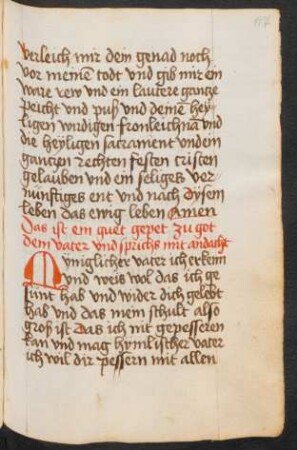 117
verleich mir dein genad noch
vor meinē todt vnd gib mir ein
ware rew vnd ein lautere gantze
peicht vnd puß vnd deinen hey
ligen wirdigen fronleichnā vnd
die heyligen sacrament vnd ein
gantzen rechten festen cristen
gelauben vnd ein seliges ver
nünftiges ent vnd nach dysem
leben das ewig leben Amen
Das ist ein guet gepet zu got
dem vater vnd sprichs mit andacht
Myniglicher vater ich erkenn
vnd weis wol das ich ge
sünt hab vnd wider dich gelebt
hab vnd das mein schult also
groß ist das ich nit gepesseren
kan vnd mag hymlischer vater
ich wil dir pessern mit allen